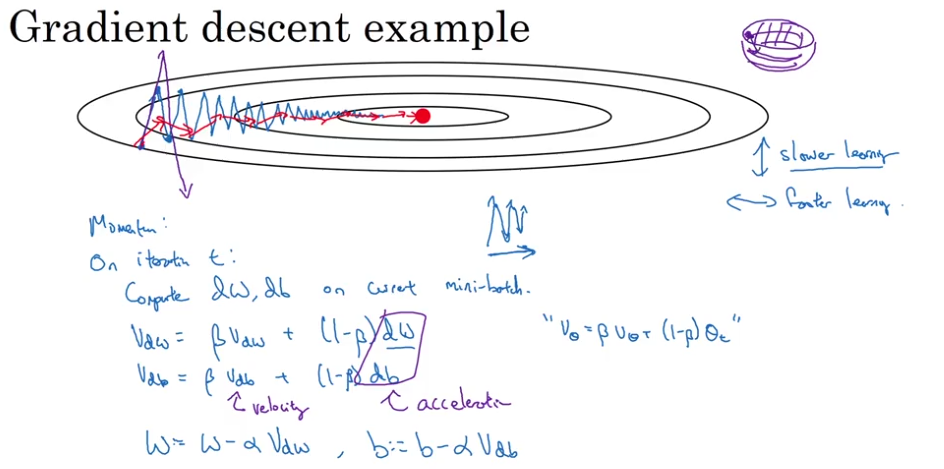 Gradient descent example
↕ slower learning
↔ faster learning.
Momentum:
On iteration t:
Compute dW, db on current mini-batch.
Vdw = β Vdw + (1-β) dW
"Vθ = β Vθ + (1-β) θt"
Vdb = β Vdb + (1-β) db
↑ velocity ↑ acceleration
W := W - α Vdw , b := b - α Vdb